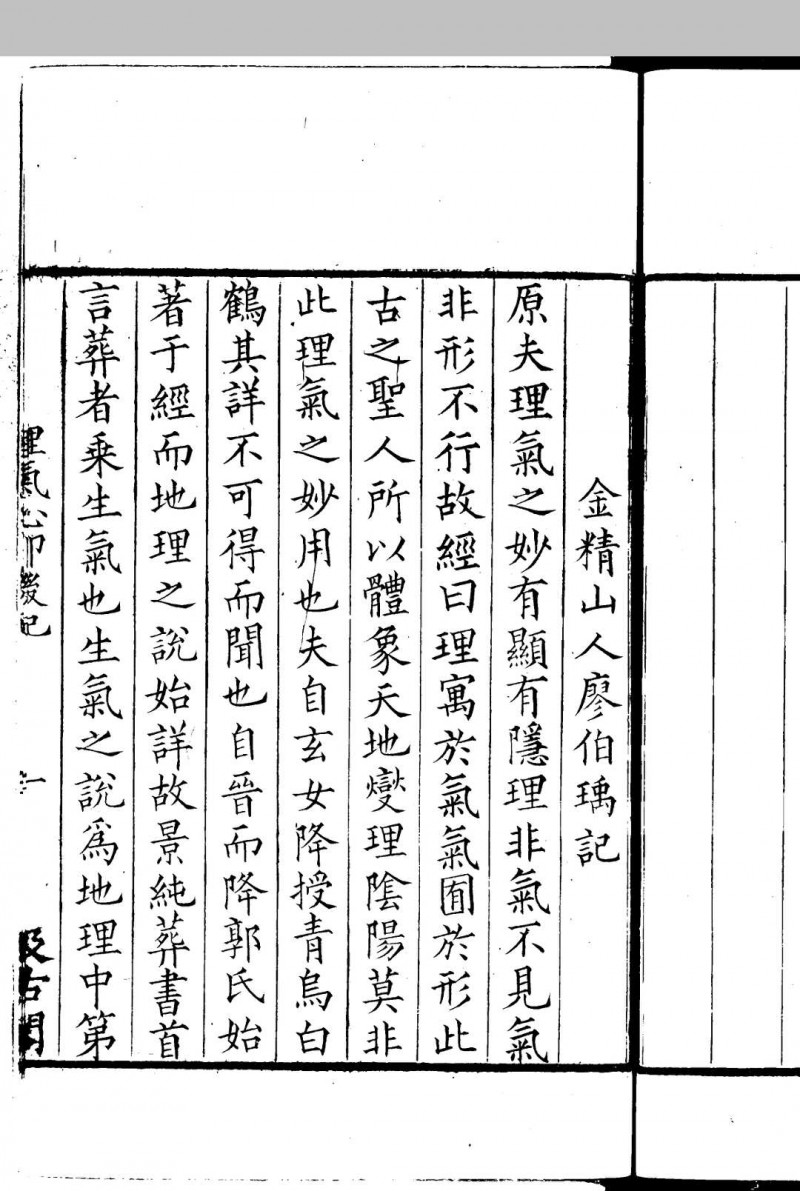 金精山人廖伯瑀記
原夫理氣之妙有顯有隱理非氣不見氣
非形不行故經曰理寓於氣氣囿於形此
古之聖人所以體象天地燮理陰陽莫非
此理氣之妙用也夫自玄女降授青烏白
鶴其詳不可得而聞也自晉而降郭氏始
著于經而地理之說始詳故景純葬書首
言葬者乘生氣也生氣之說爲地理中第
理氣心印後記
一
汲古閣